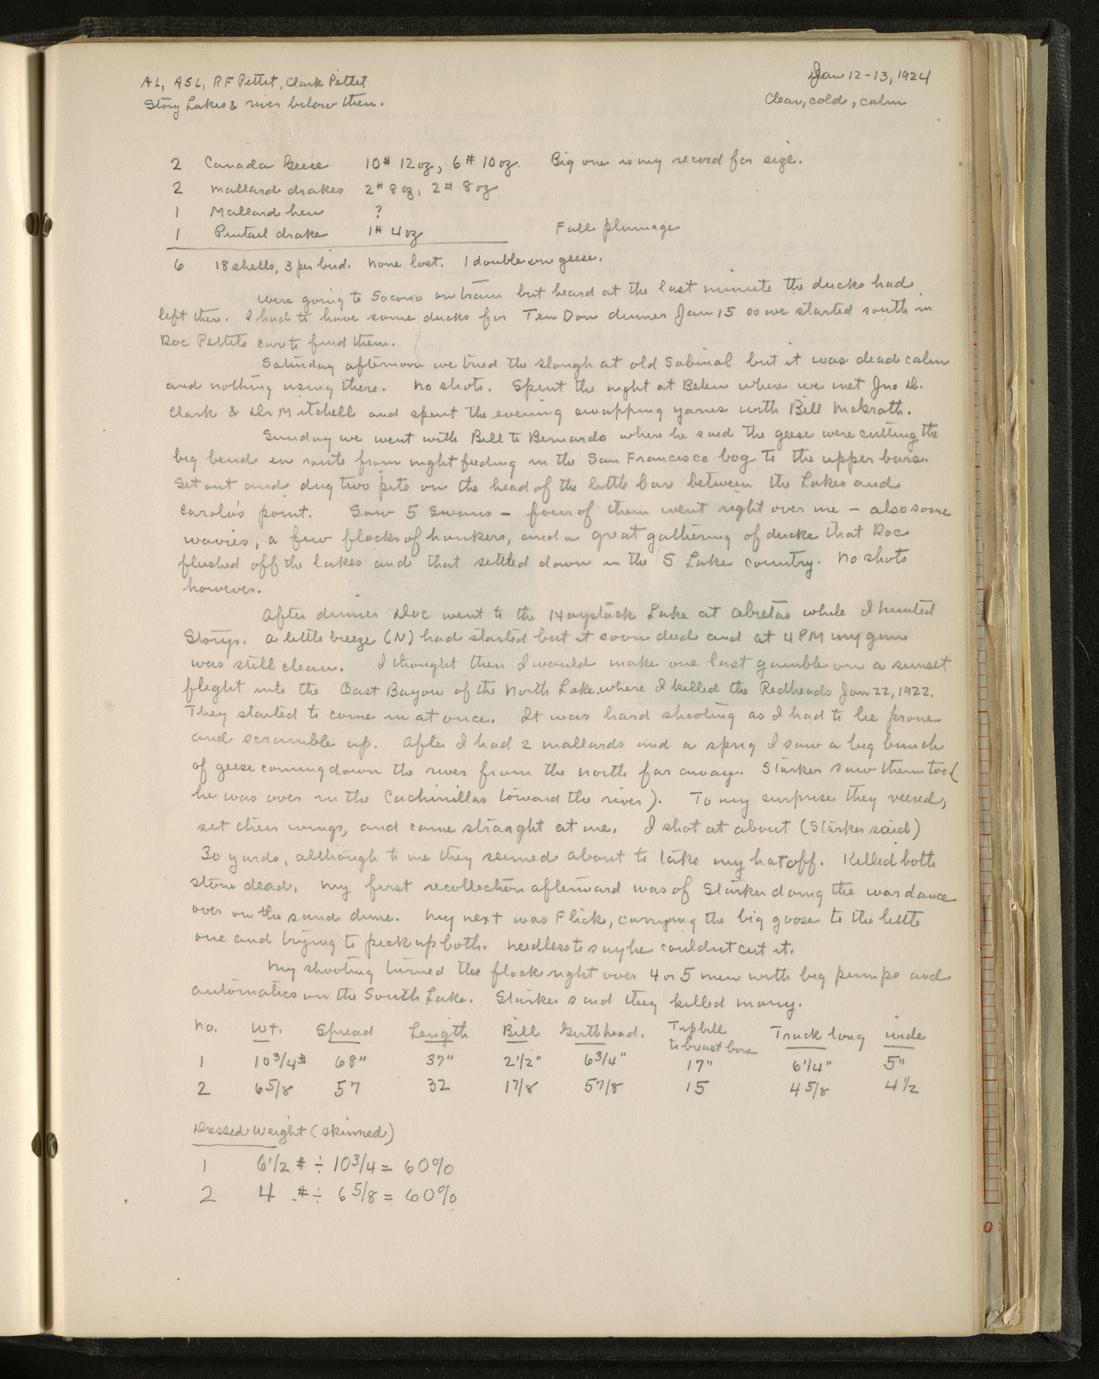 AL, ASL, RF Pettit, Clark Pettit
Jan 12-13, 1924
Story Lakes & river below them.
Clear, cold, calm
2 Canada Geese 10# 12oz, 6# 10oz. Big one is my record for size.
2 Mallard drakes 2# 8oz, 2# 8oz
1 Mallard hen ?
1 Pintail drake 1# 4oz Full plumage
6 18 shells, 3 per bird. None lost. 1 double on geese.
Were going to Socorro on train but heard at the last minute the ducks had
left there. I had to have some ducks for Ten Dons dinner Jan 15 so we started south in
Doc Pettits car to find them.
Saturday afternoon we tried the slough at old Sabinal but it was dead calm
and nothing using there. No shots. Spent the night at Belen where we met Jno D.
Clark & Dr Mitchell and spent the evening swapping yarns with Bill McGrath.
Sunday we went with Bill to Bernardo where he said the geese were cutting the
big bend en route from night feeding in the San Francisco bog to the upper bars.
Set out and dug two pits on the head of the little bar between the Lakes and
Carola's point. Saw 5 swans - four of them went right over me - also some
wavies, a few flocks of honkers, and a great gathering of ducks that Doc
flushed off the lakes and that settled down in the 5 Lake country. No shots
however.
After dinner Doc went to the Haystack Lake at Abeytas while I hunted
Storys. A little breeze (N) had started but it soon died and at 4PM my gun
was still clean. I thought then I would make one last gamble on a sunset
flight into the East Bayou of the North Lake, where I killed the Redheads Jan 22, 1922.
They started to come in at once. It was hard shooting as I had to lie prone
and scramble up. After I had 2 mallards and a sprig I saw a big bunch
of geese coming down the river from the north far away. Starker saw them too (
he was over in the Cachinillas toward the river). To my surprise they veered,
set their wings, and came straight at me. I shot at about (Starker said)
30 yards, although to me they seemed about to take my hat off. Killed both
stone dead. My first recollection afterward was of Starker doing the war dance
over on the sand dune. My next was Flick, carrying the big goose to the little
one and trying to pick up both. Needless to say he couldnt cut it.
My shooting turned the flock right over 4 or 5 men with big pumps and
automatics on the South Lake. Starker said they killed many.
No. Wt. Spread Length Bill Girth head. Tip bill to breast bone Track long wide
1 10 3/4# 68" 37" 2 1/2" 6 3/4" 17" 6 1/4" 5"
2 6 5/8 57 32 1 7/8 5 7/8 15 4 5/8 4 1/2
Dressed Weight (skinned)
1 6 1/2 # ÷ 10 3/4 = 60%
2 4 # ÷ 6 5/8 = 60%